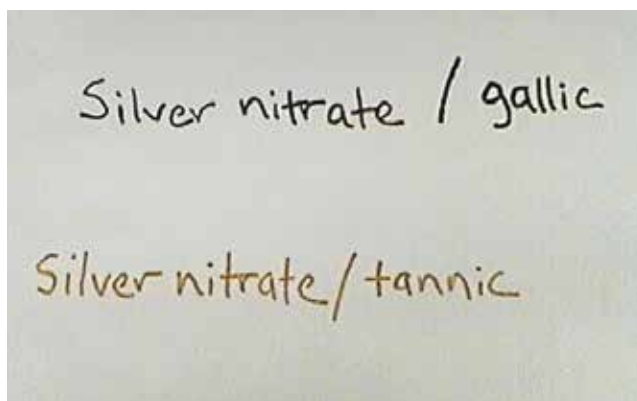 Silver nitrate / gallic
Silver nitrate/tannic